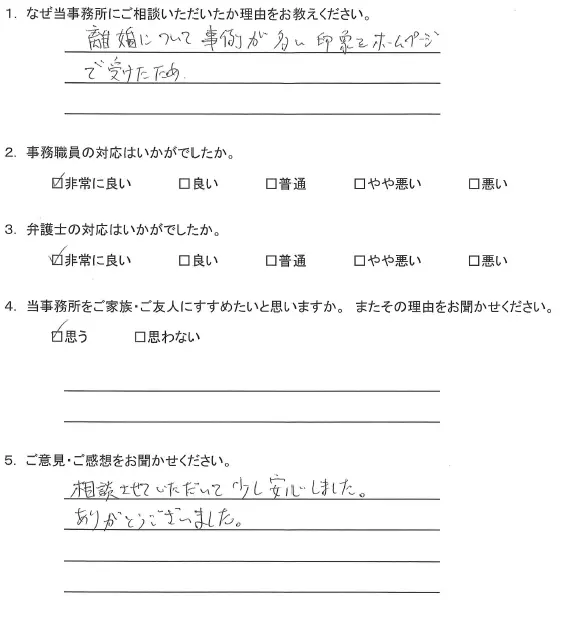 1. なぜ当事務所にご相談いただいたか理由をお教えください。
離婚について事例が多い印象をホームページ
で受けたため.
2. 事務職員の対応はいかがでしたか。
☑非常に良い □良い □普通 □やや悪い □悪い
3. 弁護士の対応はいかがでしたか。
☑非常に良い □良い □普通 □やや悪い □悪い
4. 当事務所をご家族・ご友人にすすめたいと思いますか。 またその理由をお聞かせください。
☑思う □思わない
5. ご意見・ご感想をお聞かせください。
相談させていただいて少し安心しました。
ありがとうございました。